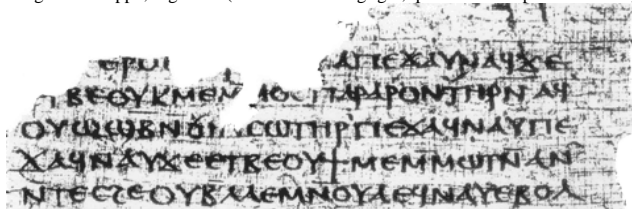 ⲡⲉϫⲁⲩⲛⲁϥϫⲉ
ⲧⲃⲉⲟⲩⲕⲙⲉ ⲙⲟⲥ ⲡⲁⲣⲁⲣⲟⲛⲧⲏⲣⲛ ⲁϥ
ⲟⲩⲱϣⲃⲛϭⲓ ⲥⲱⲧⲏⲣⲡⲉϫⲁϥⲛⲁⲩⲡⲉ
ϫⲁϥⲛⲁⲩϫⲉⲉⲧⲃⲉⲟⲩϯⲙⲉⲙⲙⲱⲧⲛⲁⲛ
ⲛⲧⲉⲥϩⲉⲟⲩⲃⲗⲗⲉⲙⲛⲟⲩⲁⲉϥⲛⲁⲩⲉⲃⲟⲗ